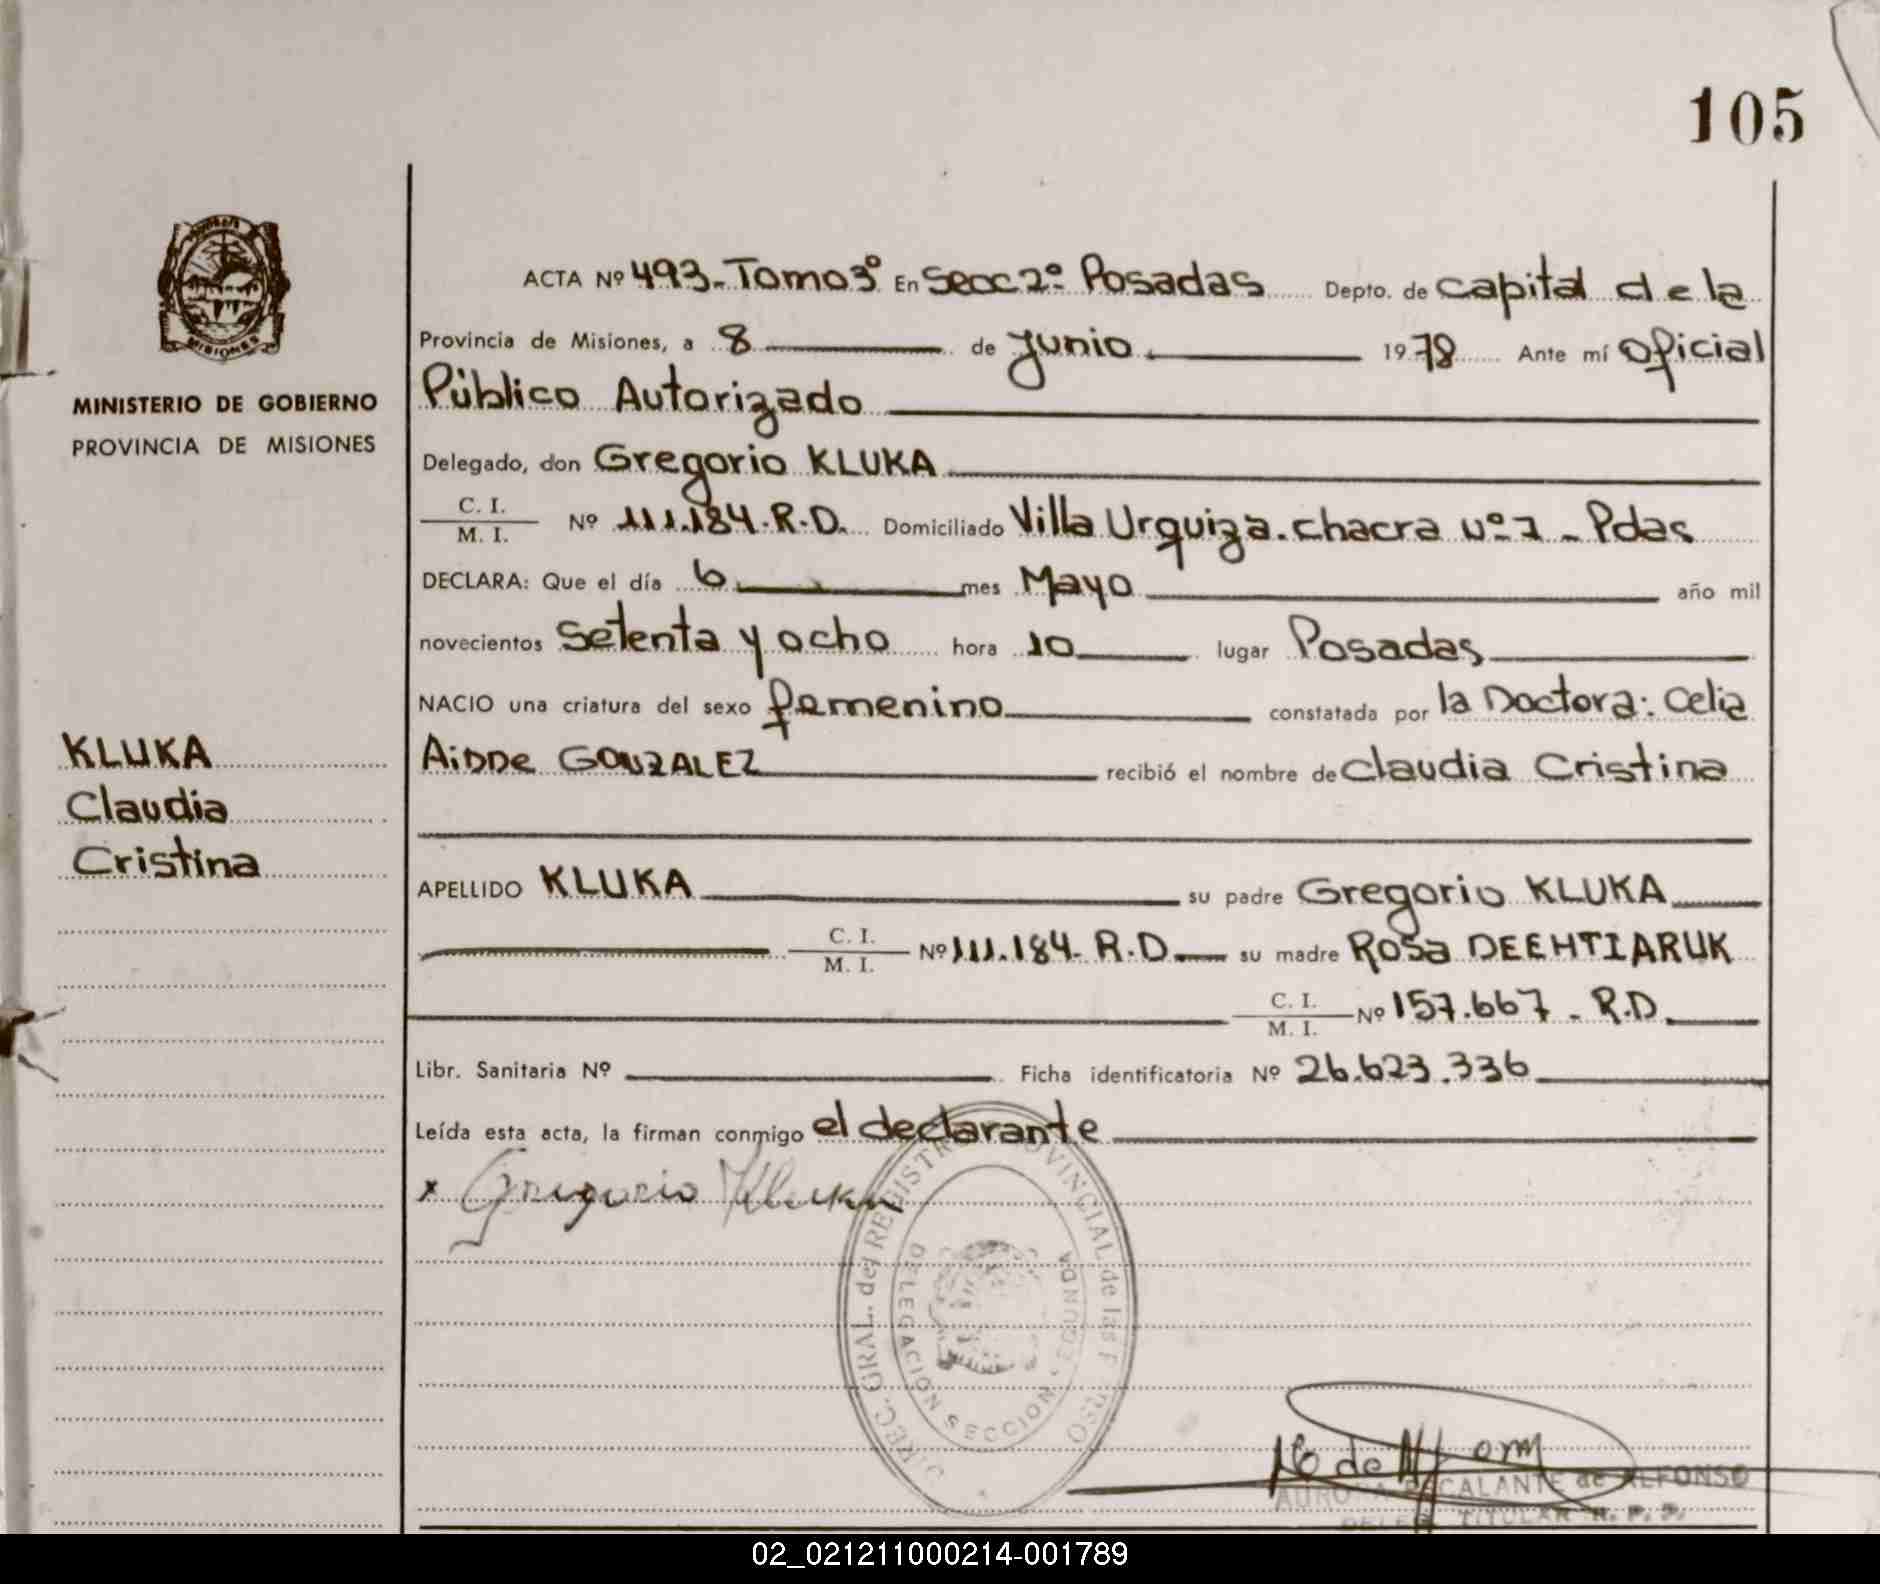 105
MISIONES
MINISTERIO DE GOBIERNO
PROVINCIA DE MISIONES
KLUKA
Claudia
Cristina
ACTA Nº 493. Tomo 3º En Secc 2º Posadas Depto. de Capital de la
Provincia de Misiones, a 8 de Junio 1978 Ante mí Oficial
Público Autorizado
Delegado, don Gregorio KLUKA
C. I.
M. I. Nº 111.184. R.D. Domiciliado Villa Urquiza. chacra nº 7 - Pdas
DECLARA: Que el día 6 mes Mayo año mil
novecientos setenta y ocho hora 10 lugar Posadas
NACIO una criatura del sexo femenino constatada por la Doctora: Celia
AiDDe GONZALEZ recibió el nombre de Claudia Cristina
APELLIDO KLUKA su padre Gregorio KLUKA
C. I.
M. I. Nº 111.184. R.D. su madre Rosa DEEHTIARUK
C. I.
M. I. Nº 157.667 - R.D.
Libr. Sanitaria Nº Ficha identificatoria Nº 26.623.336
Leída esta acta, la firman conmigo el declarante
x Gregorio Kluka
DIREC. GRAL. del REGISTRO PROVINCIAL de las
DELEGACION SECCION SEGUNDA
ESCALANTE de ALFONSO
TITULAR R. P. P.
02_021211000214-001789